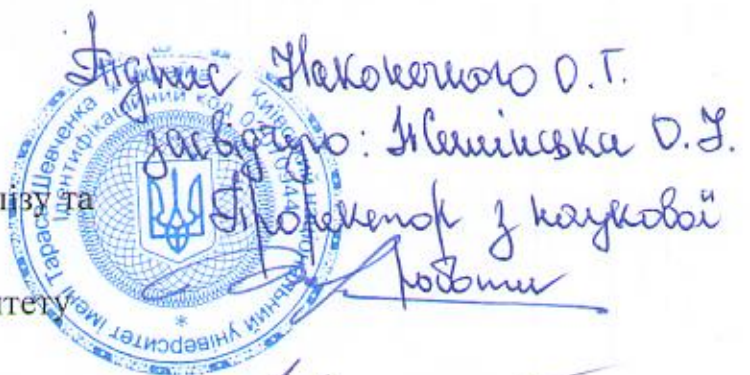 Підпис Наконечного О.Г.
засвідчую: Жилінська О.І.
Проректор з наукової
роботи
лізу та
итету
Київський національний університет імені Тараса Шевченка
Україна
Ідентифікаційний код